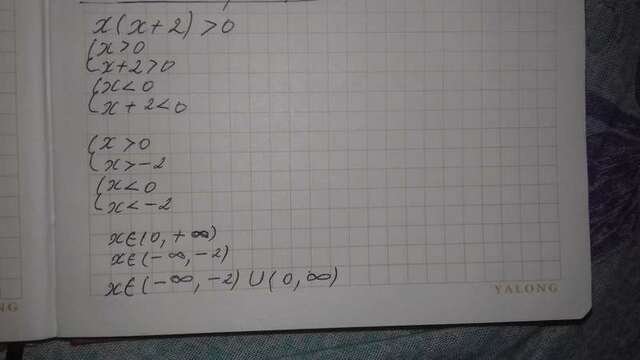 x(x+2)>0
{x>0
{x+2>0
{x<0
{x+2<0
{x>0
{x>-2
{x<0
{x<-2
x∈(0,+∞)
x∈(-∞,-2)
x∈(-∞,-2)∪(0,∞)
YALONG
NG